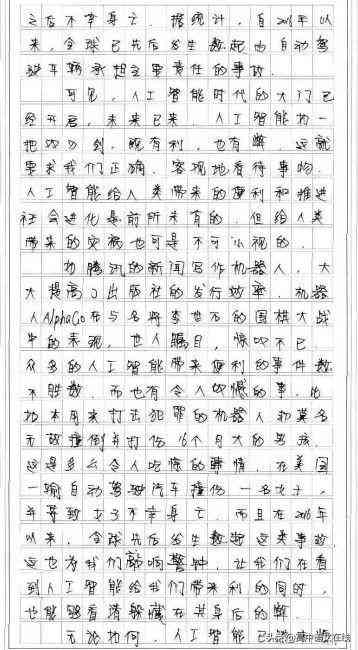 之后不幸身亡。据统计,自2016年以
来,全球已先后发生数起由自动驾
驶车辆承担主要责任的事故。
可见,人工智能时代的大门已
经开启,未来已来。人工智能如一
把双刃剑,既有利,也有弊。这就
要求我们正确、客观地看待事物。
人工智能给人类带来的便利和推进
社会进化是前所未有的,但给人类
带来的灾祸也可是不可小视的。
如腾讯的新闻写作机器人,大
大提高了出版社的发行效率。机器
人AlphaGo在与名将李世石的围棋大战
中的表现,世人瞩目,惊叹不已
众多的人工智能带来便利的事件数
不胜数。而也有令人惊憾的事,比
如本用来打击犯罪的机器人却莫名
无故撞倒并打伤16个月大的男孩。
这是多么令人吃惊的事情。在美国
一辆自动驾驶汽车撞伤一名女子,
并导致女子不幸身亡。而且在2016年
以来,全球先后发生数起这类事故
这也为我们敲响警钟,让我们在看
到人工智能给我们带来利的同时,
也能够看清躲藏在其身后的弊。
无论如何,人工智能已
头条@高中语文在线